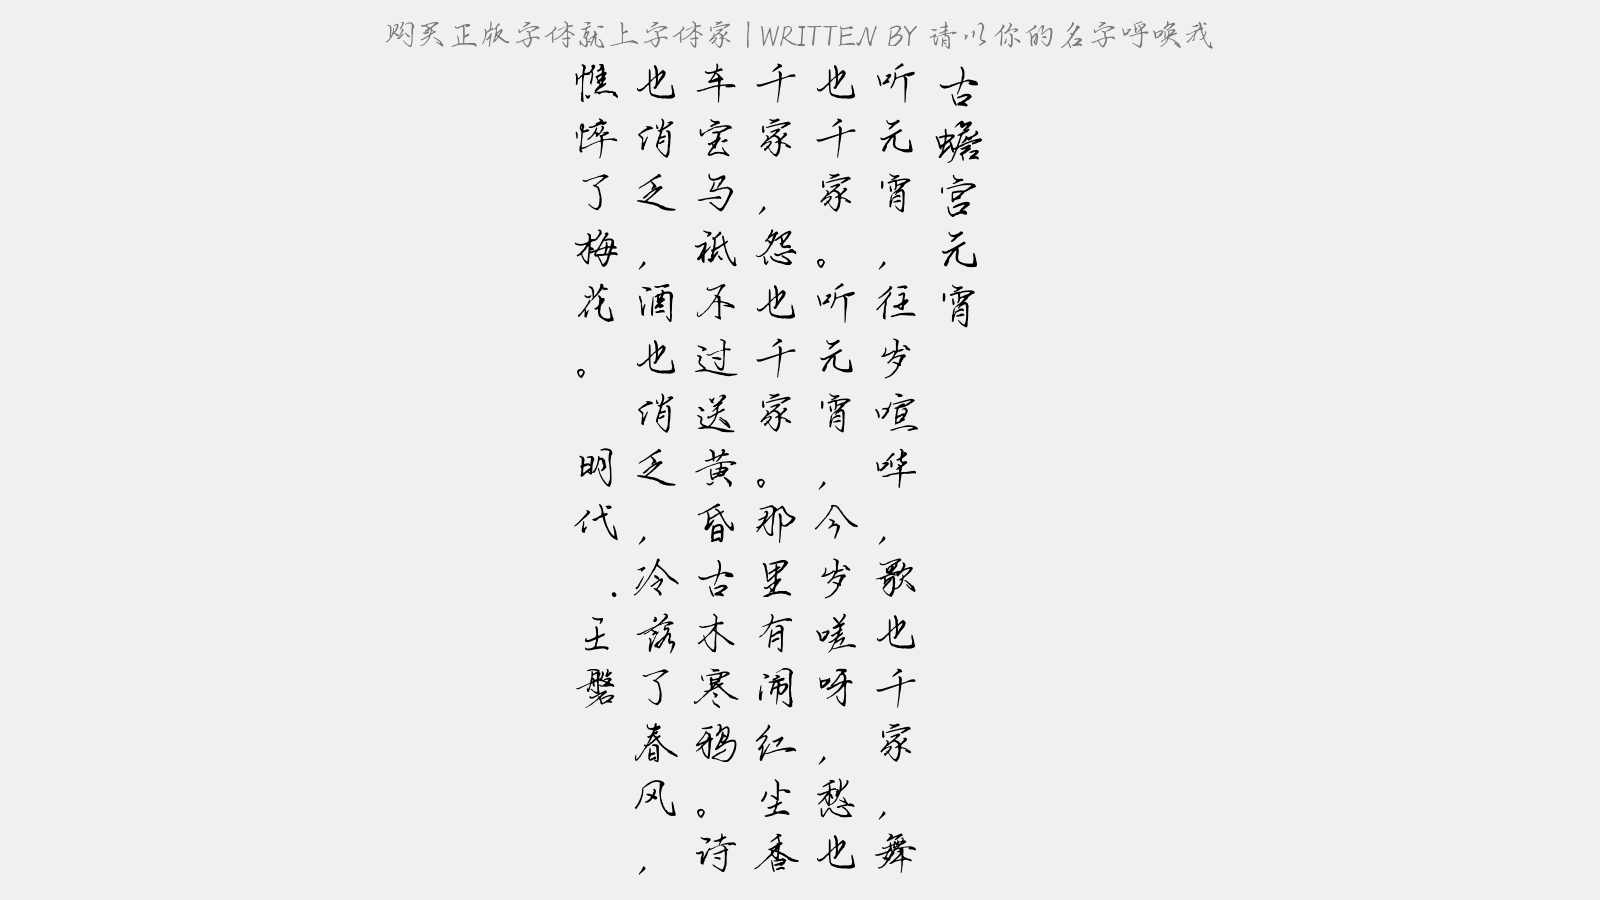 购买正版字体就上字体家|WRITTEN BY 请以你的名字呼唤我
古蟾宫元宵
听元宵，往岁喧哗，歌也千家，舞
也千家。听元宵，今岁嗟呀，愁也
千家，怨也千家。那里有闹红尘香
车宝马，祗不过送黄昏古木寒鸦。诗
也俏乏，酒也俏乏，冷落了春风，
憔悴了梅花。 明代.王磐